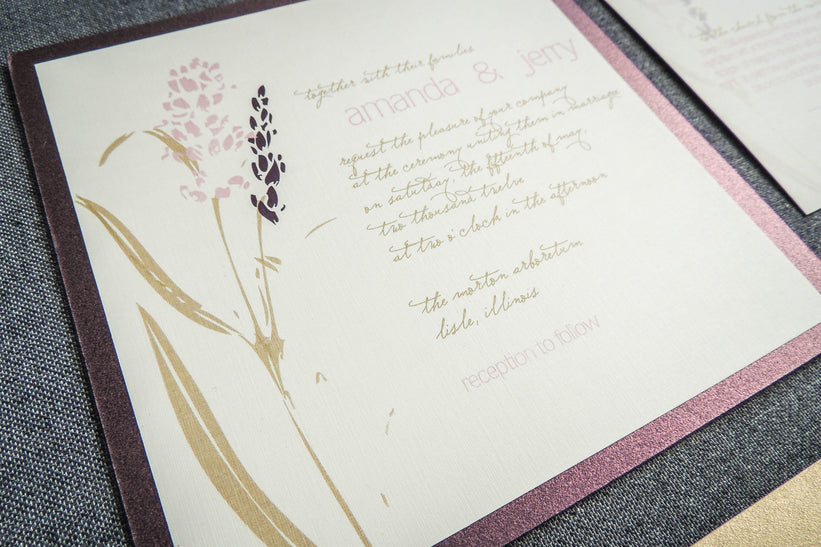 together with their families
amanda & jerry
request the pleasure of your company
at the ceremony uniting them in marriage
on satuday, the fifteenth of may,
two thousand twelve
at two o'clock in the afternoon
the morton arboretum
lisle, illinois
reception to follow